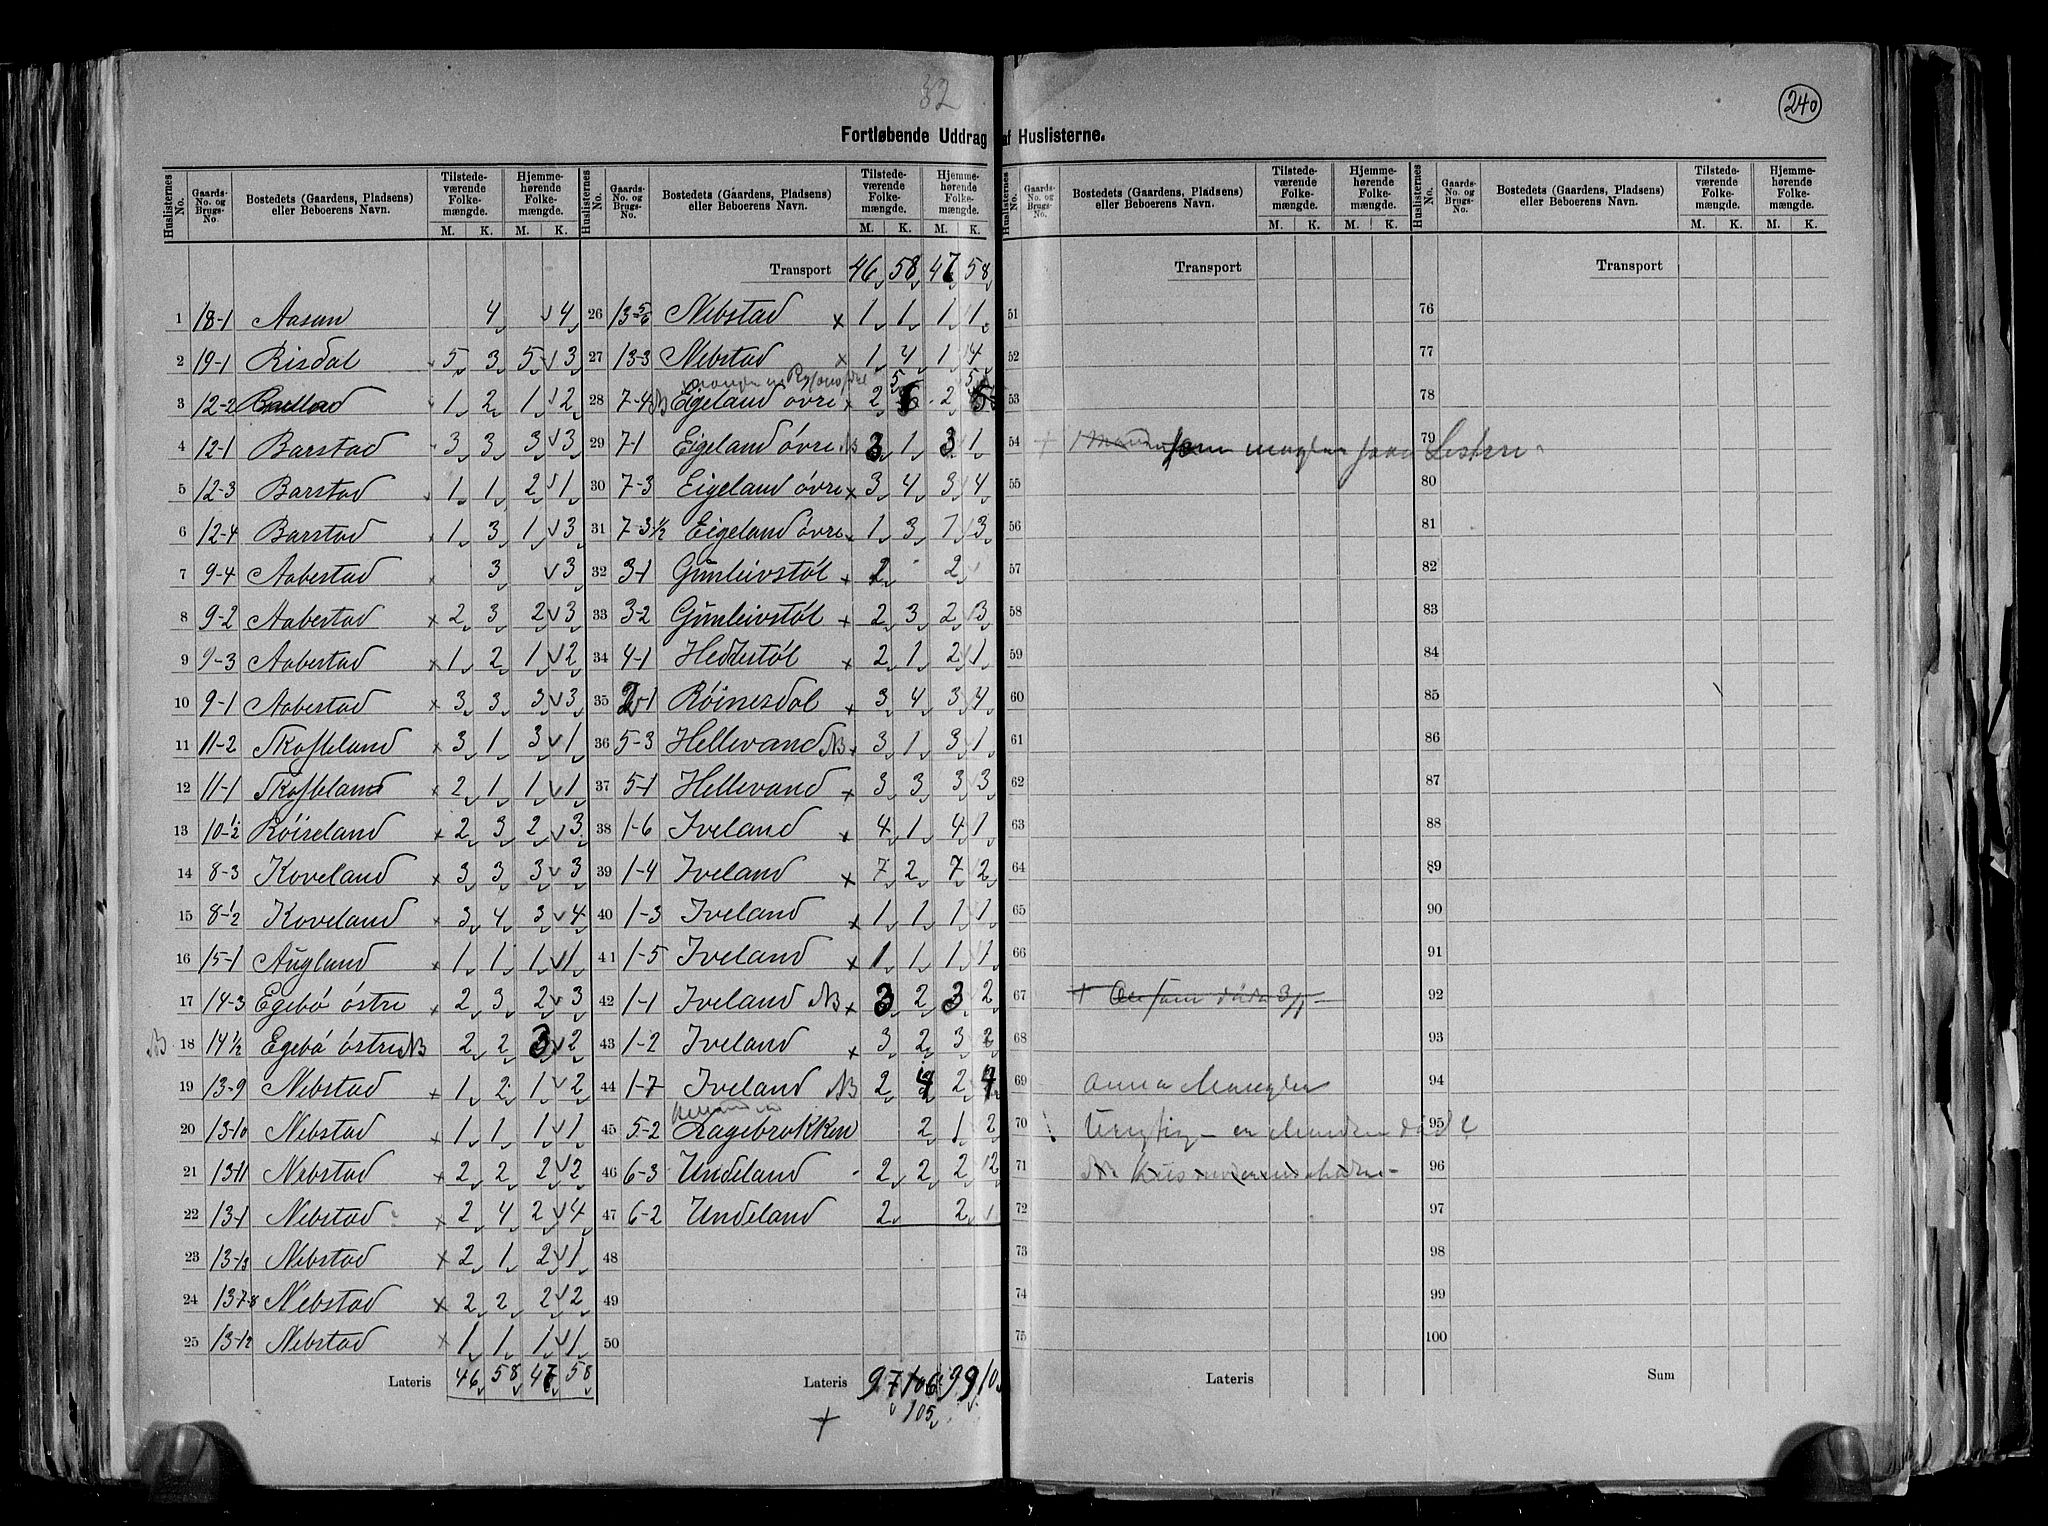 32
240
Fortløbende Uddrag af Huslisterne.
Huslisternes No. | Gaards-No. og Brugs-No. | Bostedets (Gaardens, Pladsens) eller Beboerens Navn. | Tilstedeværende Folkemængde. M. K. | Hjemmehørende Folkemængde. M. K.
1 18-1 Aasen 4 4
2 19-1 Risdal 5 3 5 3
3 12-2 1 2 1 2
4 12-1 Barstad 3 3 3 3
5 12-3 Barstad 1 1 2 1
6 12-4 Barstad 1 3 1 3
7 9-4 Aabestad 3 3
8 9-2 Aabestad x 2 3 2 3
9 9-3 Aabestad x 1 2 1 2
10 9-1 Aabestad x 3 3 3 3
11 11-2 Skofteland x 3 1 3 1
12 11-1 Skofteland x 2 1 1 1
13 10-½ Röiseland x 2 3 2 3
14 8-3 Koveland x 3 3 3 3
15 8-½ Koveland x 3 4 3 4
16 15-1 Augland x 1 1 1 1
17 14-3 Egebö östre x 2 3 2 3
NB 18 14½ Egebö östre NB 2 2 3 2
19 13-9 Nebstad x 1 2 1 2
20 13-10 Nebstad x 1 1 1 1
21 13-11 Nebstad x 2 2 2 2
22 13-1 Nebstad x 2 4 2 4
23 13-13 Nebstad x 2 1 2 1
24 13-7-8 Nebstad x 2 2 2 2
25 13-12 Nebstad x 1 1 1 1
Lateris 46 58 47 58
Huslisternes No. | Gaards-No. og Brugs-No. | Bostedets (Gaardens, Pladsens) eller Beboerens Navn. | Tilstedeværende Folkemængde. M. K. | Hjemmehørende Folkemængde. M. K.
Transport 46 58 47 58
26 13-5/6 Nebstad x 1 1 1 1
27 13-3 Nebstad x 1 4 1 4
28 7-4 NB Eigeland övre x 2 5 2 5
29 7-1 Eigeland övre NB 3 1 3 1
30 7-3 Eigeland övre x 3 4 3 4
31 7-3½ Eigeland övre x 1 3 1 3
32 3-1 Gunleivstöl x 2 2
33 3-2 Gunleivstöl x 2 3 2 3
34 4-1 Heddestöl x 2 1 2 1
35 2-1 Röinesdal x 3 4 3 4
36 5-3 Hellevand NB x 3 1 3 1
37 5-1 Hellevand x 3 3 3 3
38 1-6 Iveland x 4 1 4 1
39 1-4 Iveland x 7 2 7 2
40 1-3 Iveland x 1 1 1 1
41 1-5 Iveland x 1 1 1 1
42 1-1 Iveland NB x 3 2 3 2
43 1-2 Iveland x 3 2 3 2
44 1-7 Iveland NB 2 4 2 4
45 5-2 Lagebrokken 2 1 2
46 6-3 Undeland 2 2 2 2
47 6-2 Undeland 2 2
48
49
50
Lateris 97 106 99 10
105
Huslisternes No. | Gaards-No. og Brugs-No. | Bostedets (Gaardens, Pladsens) eller Beboerens Navn. | Tilstedeværende Folkemængde. M. K. | Hjemmehørende Folkemængde. M. K.
Transport
51
52
53
54 som
55
56
57
58
59
60
61
62
63
64
65
66
67
68
69 Anna Mangler
70
71
72
73
74
75
Lateris
Huslisternes No. | Gaards-No. og Brugs-No. | Bostedets (Gaardens, Pladsens) eller Beboerens Navn. | Tilstedeværende Folkemængde. M. K. | Hjemmehørende Folkemængde. M. K.
Transport
76
77
78
79
80
81
82
83
84
85
86
87
88
89
90
91
92
93
94
95
96
97
98
99
100
Sum